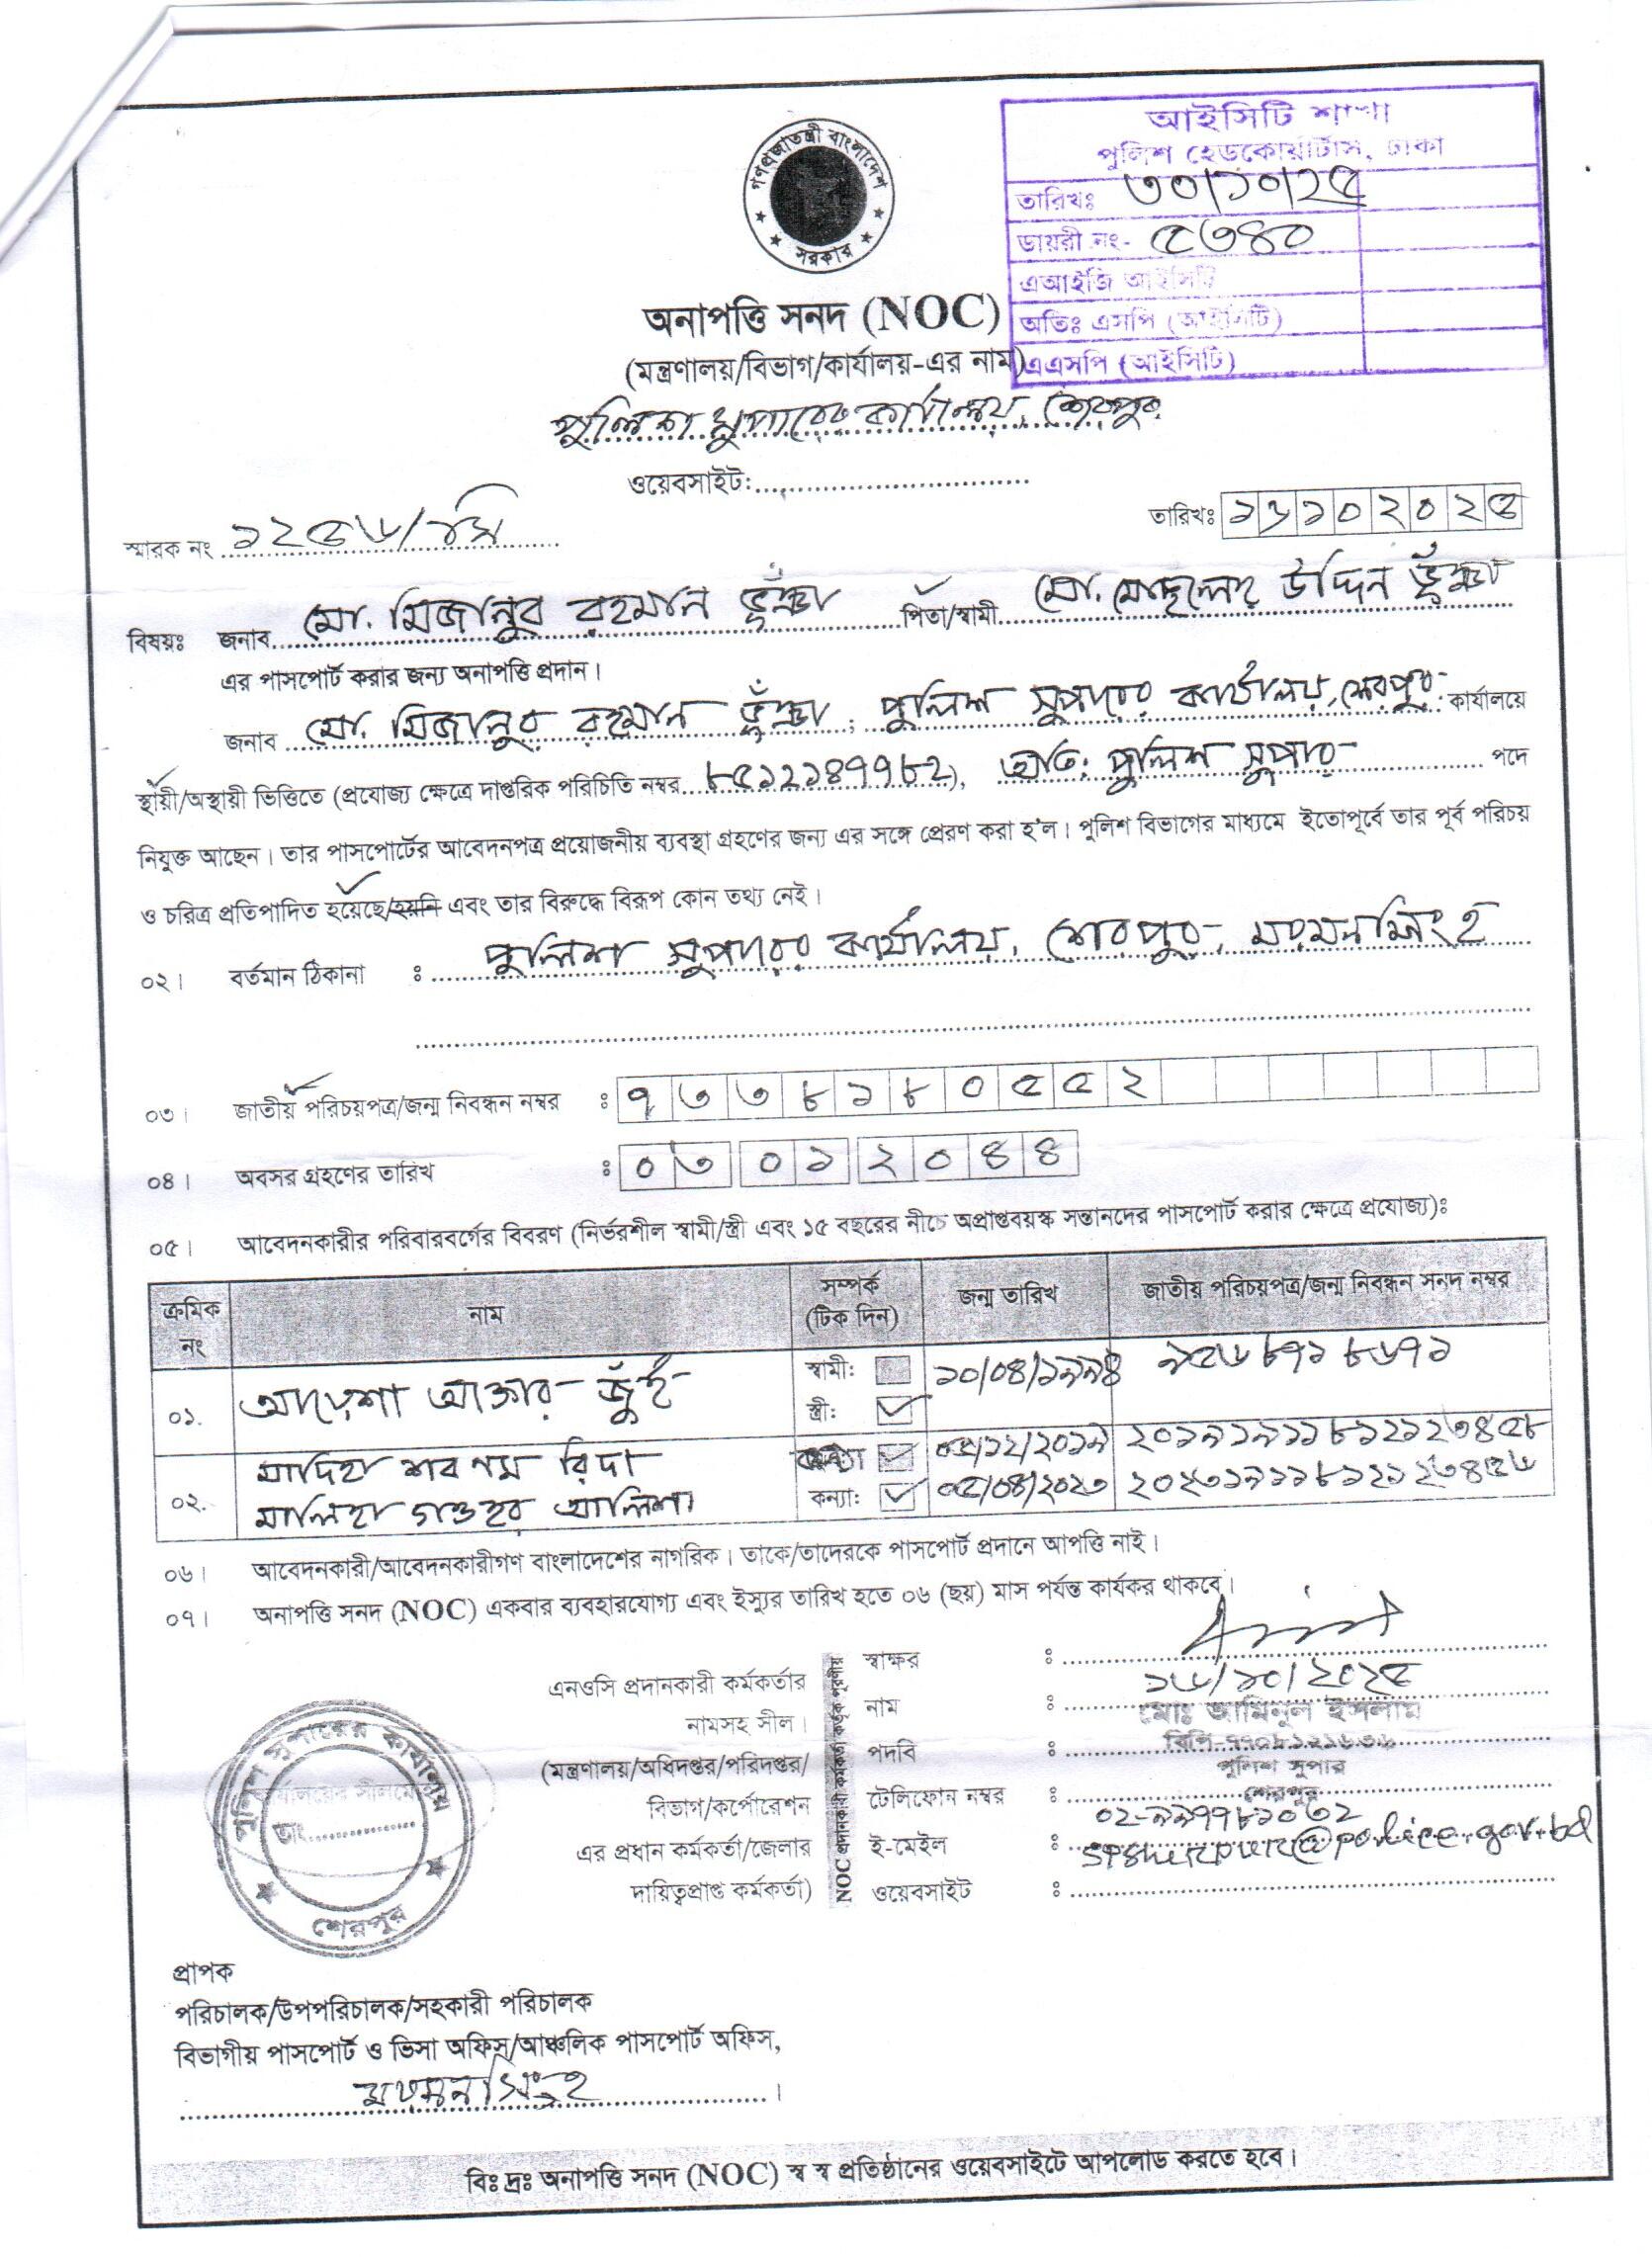 গণপ্রজাতন্ত্রী বাংলাদেশ
সরকার
আইসিটি শাখা
পুলিশ হেডকোয়ার্টার্স, ঢাকা
তারিখঃ ৩০/১০/২৫
ডায়রী নং- ৫৩৪০
এআইজি আইসিটি
অতিঃ এসপি (আইসিটি)
এএসপি (আইসিটি)
অনাপত্তি সনদ (NOC)
(মন্ত্রণালয়/বিভাগ/কার্যালয়-এর নাম)
পুলিশ সুপারের কার্যালয়, শেরপুর
ওয়েবসাইট:
স্মারক নং ১২৫৬/
তারিখঃ ১৬১০২০২৫
বিষয়ঃ জনাব মো. মিজানুর রহমান ভূঁঞা পিতা/স্বামী মো. উদ্দিন ভূঁঞা
এর পাসপোর্ট করার জন্য অনাপত্তি প্রদান।
জনাব মো. মিজানুর রহমান ভূঁঞা, পুলিশ সুপারের কার্যালয়, শেরপুর কার্যালয়ে
স্থায়ী/অস্থায়ী ভিত্তিতে (প্রযোজ্য ক্ষেত্রে দাপ্তরিক পরিচিতি নম্বর ৮৫১২১৪৭৭৮২), অতি: পুলিশ সুপার পদে
নিযুক্ত আছেন। তার পাসপোর্টের আবেদনপত্র প্রয়োজনীয় ব্যবস্থা গ্রহণের জন্য এর সঙ্গে প্রেরণ করা হ'ল। পুলিশ বিভাগের মাধ্যমে ইতোপূর্বে তার পূর্ব পরিচয়
ও চরিত্র প্রতিপাদিত হয়েছে/হয়নি এবং তার বিরুদ্ধে বিরূপ কোন তথ্য নেই।
০২। বর্তমান ঠিকানা : পুলিশ সুপারের কার্যালয়, শেরপুর, ময়মনসিংহ
০৩। জাতীয় পরিচয়পত্র/জন্ম নিবন্ধন নম্বর : ৭৩৩৮১৮০৫৫২
০৪। অবসর গ্রহণের তারিখ : ০৩ ০১ ২০৪৪
০৫। আবেদনকারীর পরিবারবর্গের বিবরণ (নির্ভরশীল স্বামী/স্ত্রী এবং ১৫ বছরের নীচে অপ্রাপ্তবয়স্ক সন্তানদের পাসপোর্ট করার ক্ষেত্রে প্রযোজ্য)ঃ
ক্রমিক নং নাম সম্পর্ক (টিক দিন) জন্ম তারিখ জাতীয় পরিচয়পত্র/জন্ম নিবন্ধন সনদ নম্বর
০১. আয়েশা আক্তার জুঁই স্বামী: ১০/০৪/১৯৯৪ ৯৫৬৮৭১৮৬৭১
স্ত্রী:
মাদিহা শবনম রিদা /১২/২০১৯ ২০১৯১৯১১৮১২১২৩৪৫৮
০২. মালিহা গওহর আলিশা কন্যা: ০৫/০৪/২০২৩
০৬। আবেদনকারী/আবেদনকারীগণ বাংলাদেশের নাগরিক। তাকে/তাদেরকে পাসপোর্ট প্রদানে আপত্তি নাই।
০৭। অনাপত্তি সনদ (NOC) একবার ব্যবহারযোগ্য এবং ইস্যুর তারিখ হতে ০৬ (ছয়) মাস পর্যন্ত কার্যকর থাকবে।
এনওসি প্রদানকারী কর্মকর্তার
নামসহ সীল।
(মন্ত্রণালয়/অধিদপ্তর/পরিদপ্তর/
বিভাগ/কর্পোরেশন
এর প্রধান কর্মকর্তা/জেলার
দায়িত্বপ্রাপ্ত কর্মকর্তা)
NOC প্রদানকারী কর্মকর্তা কর্তৃক পূরণীয়
স্বাক্ষর :
১৬/১০/২০২৫
নাম : মোঃ আমিনুল ইসলাম
পদবি :
পুলিশ সুপার
শেরপুর
টেলিফোন নম্বর : ০২-৯৯৭৭৮১০৩২
ই-মেইল : spsherpur@police.gov.bd
ওয়েবসাইট :
পুলিশ সুপারের কার্যালয়
তাং
শেরপুর
প্রাপক
পরিচালক/উপপরিচালক/সহকারী পরিচালক
বিভাগীয় পাসপোর্ট ও ভিসা অফিস/আঞ্চলিক পাসপোর্ট অফিস,
ময়মনসিংহ।
বিঃ দ্রঃ অনাপত্তি সনদ (NOC) স্ব স্ব প্রতিষ্ঠানের ওয়েবসাইটে আপলোড করতে হবে।